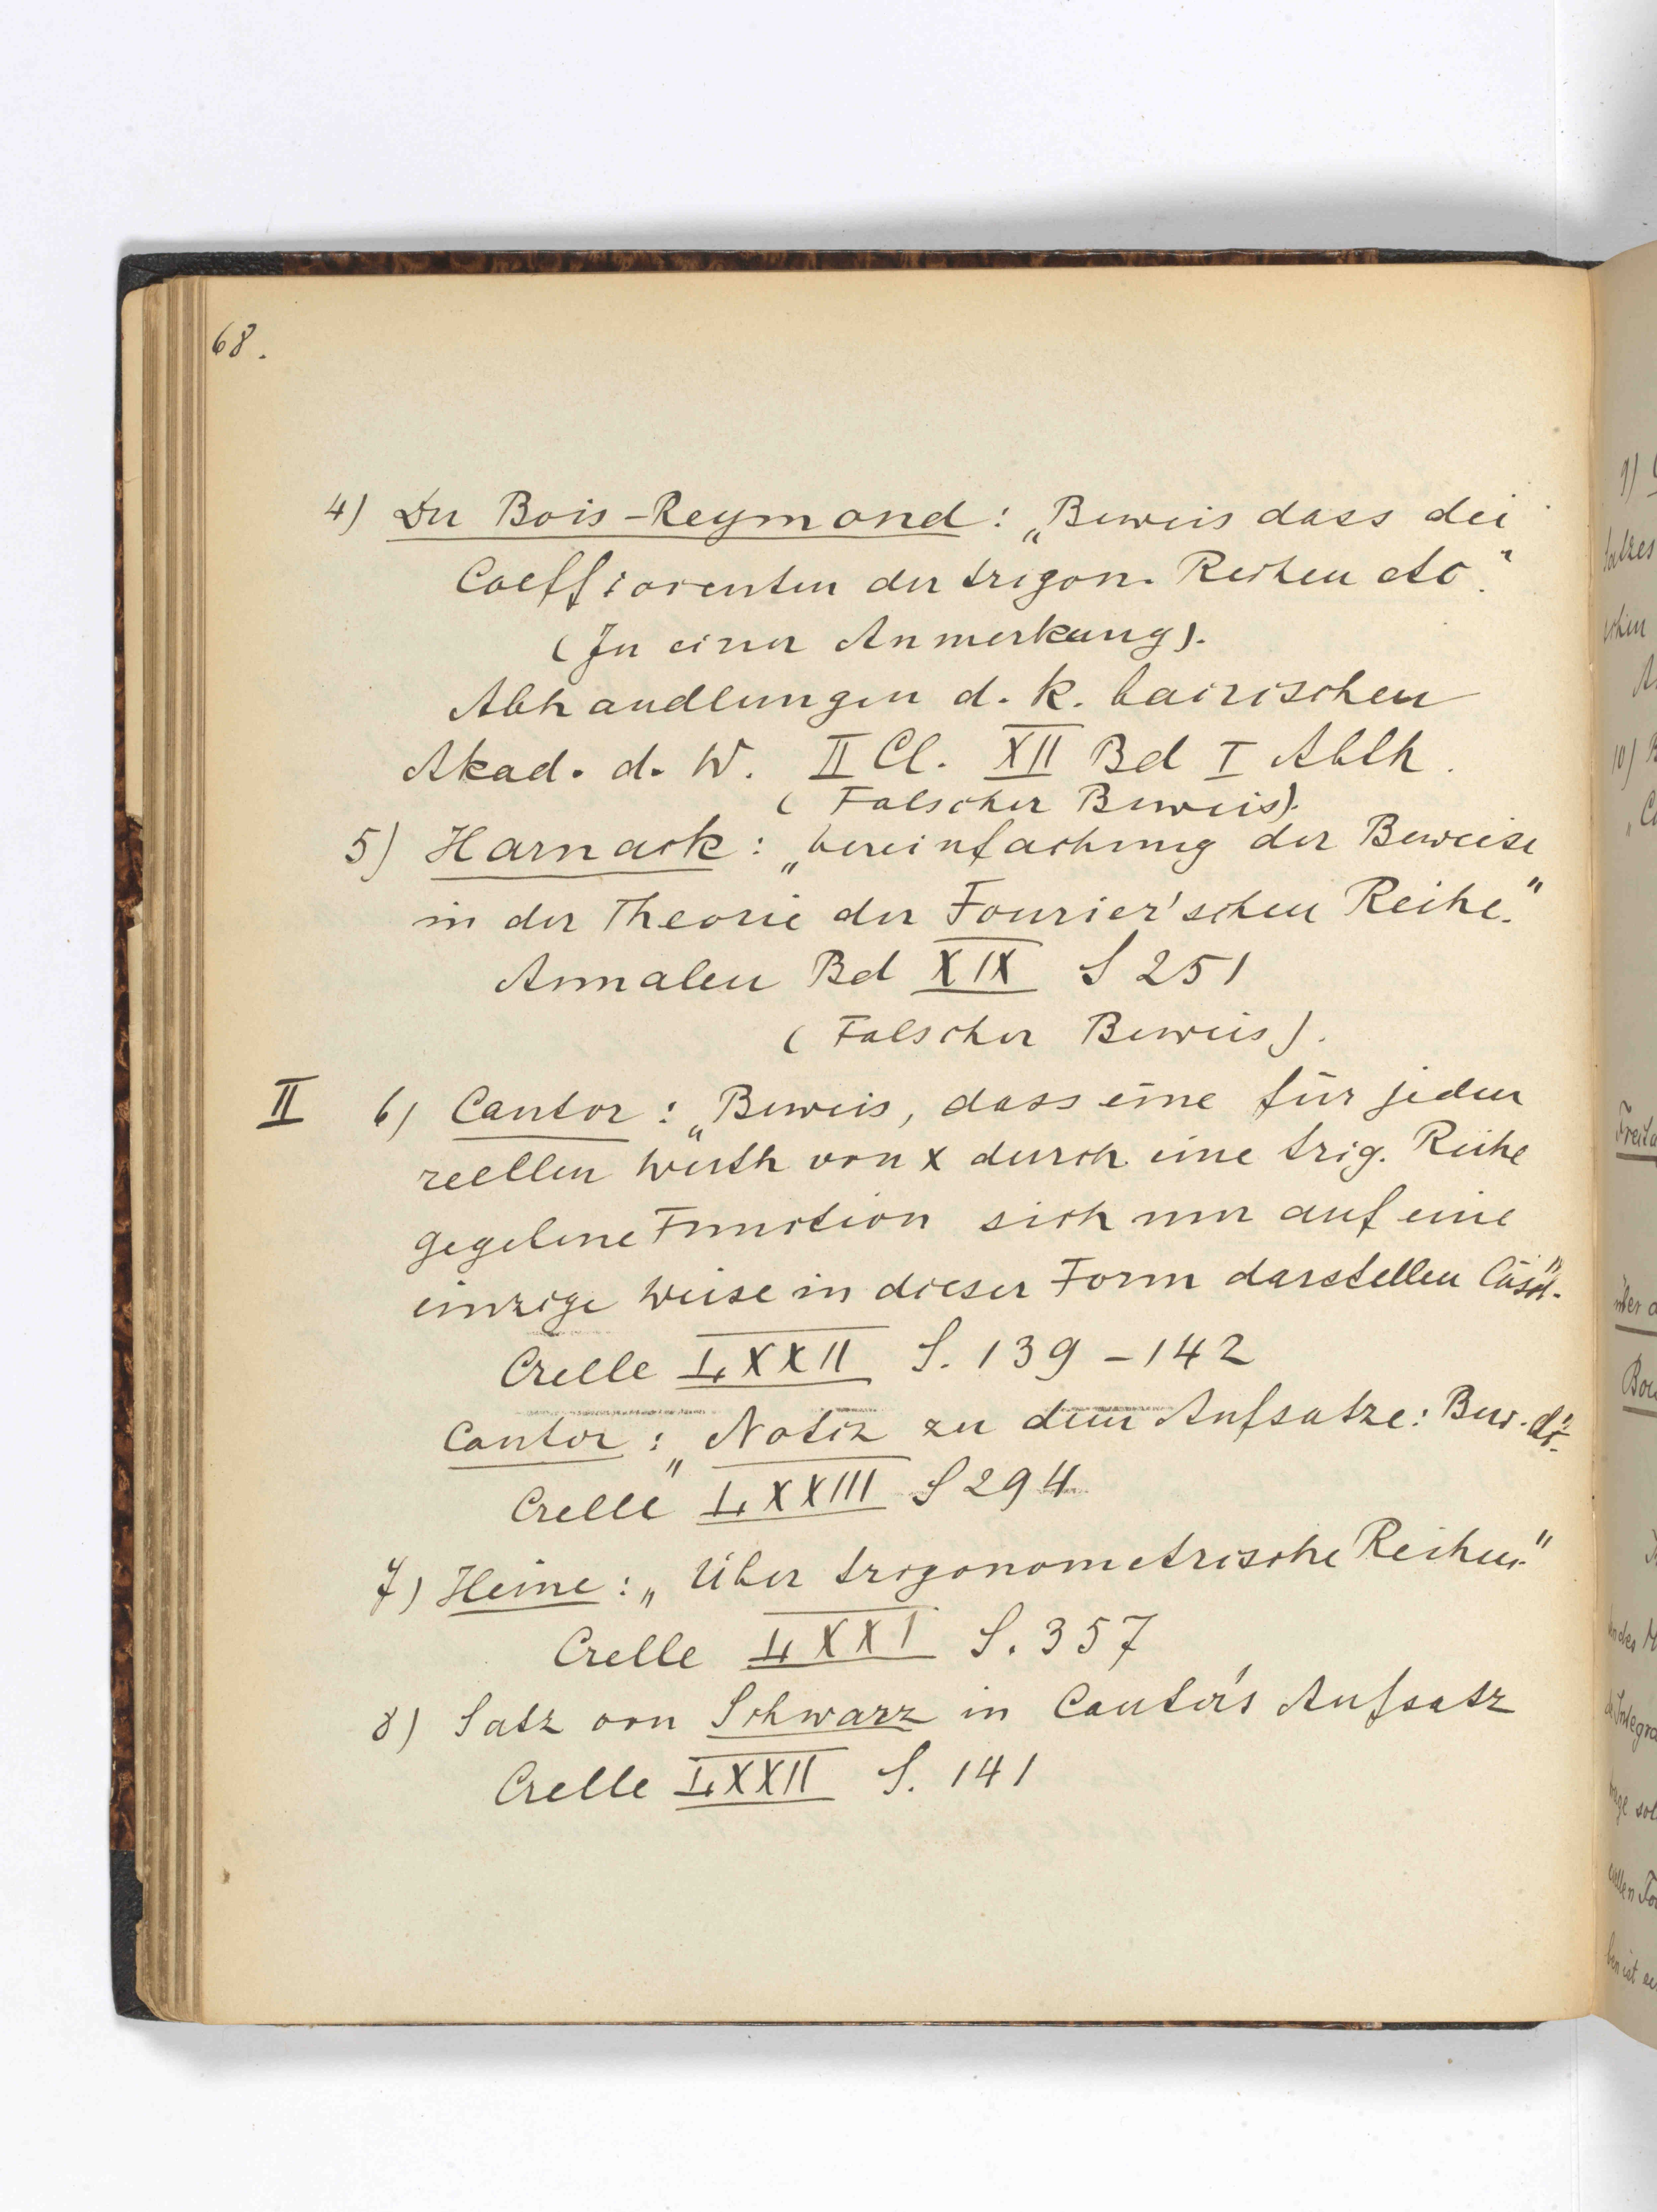 68.
4) Du Bois-Reymond: „Beweis dass dei
Coefficienten der trigon. Reihen etc."
(In einer Anmerkung).
Abhandlungen d. k. bairischen
Akad. d. W. II Cl. XII Bd I Abth.
(Falscher Beweis).
5) Harnack: „Vereinfachung der Beweise
in der Theorie der Fourier'schen Reihe."
Annalen Bd XIX S 251
(Falscher Beweis).
II 6) Cantor: „Beweis, dass eine für jeden
reellen Werth von x durch eine trig. Reihe
gegebene Function sich nur auf eine
einzige Weise in dieser Form darstellen lässt."
Crelle LXXII S. 139-142
Cantor: „Notiz zu dem Aufsatze: Bew.
Crelle LXXIII S 294
7) Heine: „Über trigonometrische Reihen."
Crelle LXXI S. 357
8) Satz von Schwarz in Cantor's Aufsatz
Crelle LXXII S. 141
9)
10)